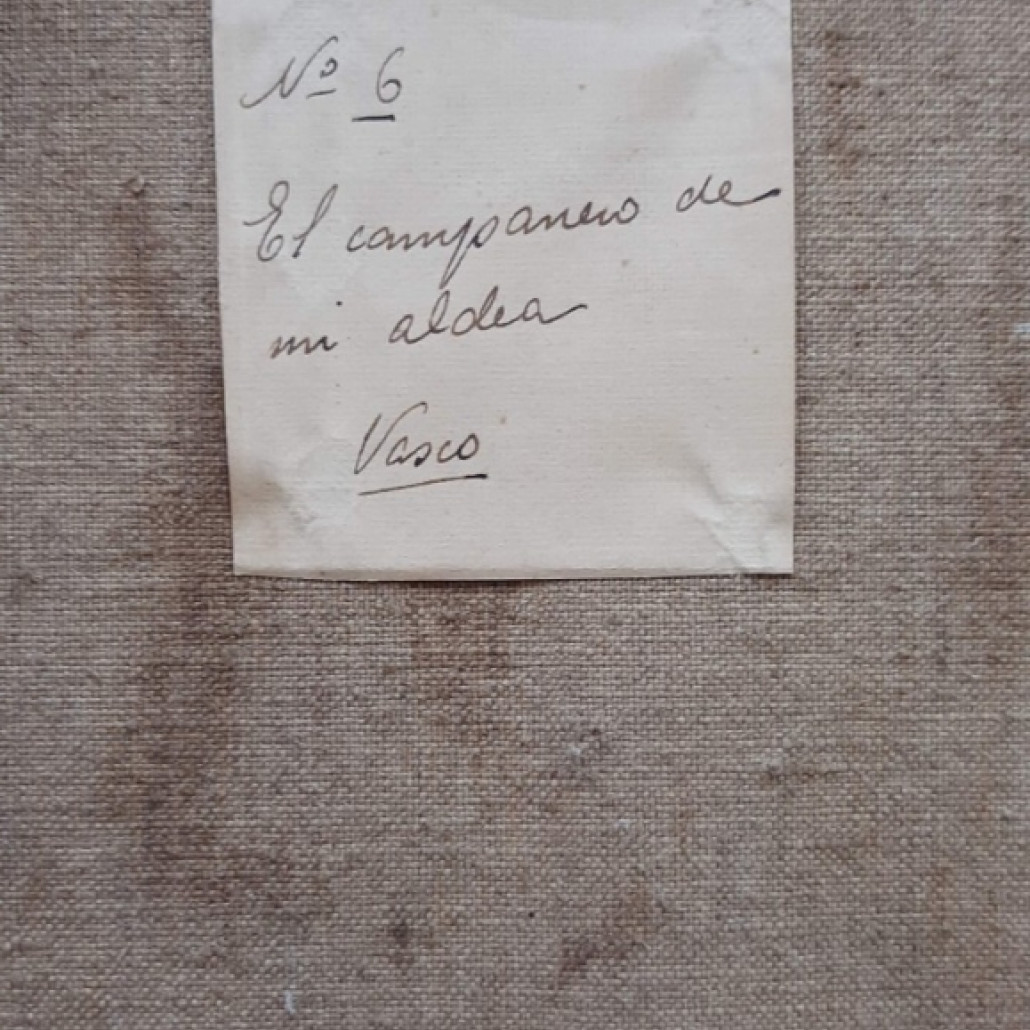 Nº 6
El campanero de
mi aldea
Vasco